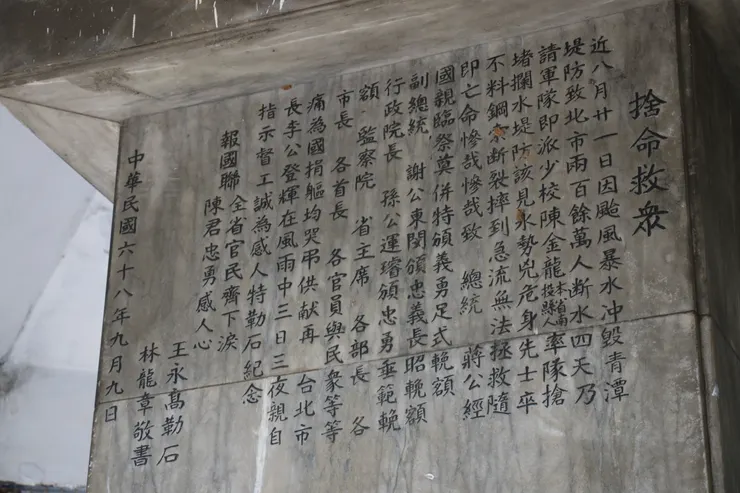 捨命救眾
近八月廿一日因颱風暴水冲毀青潭
堤防致北市兩百餘萬人断水四天乃
請軍隊即派少校陳金龍本省南投縣人率隊搶
堵攔水堤防該見水勢兇危身先士卒
不料鋼索断裂摔到急流無法拯救隨
即亡命慘哉慘哉致 總統 蔣公經
國親臨祭奠併特頒義勇足式輓額
副總統 謝公東閔頒忠義長昭輓額
行政院長 孫公運璿頒忠勇垂範輓
額 監察院 省主席 各部長 各
市長 各首長 各官員與民衆等等
痛為國捐軀均哭弔供献再 台北市
長李公登輝在風雨中三日三夜親自
指示督工誠為感人特勒石紀念
報國聯 全省官民齊下淚
陳君忠勇感人心
王永髙勒石
林龍章敬書
中華民國六十八年九月九日